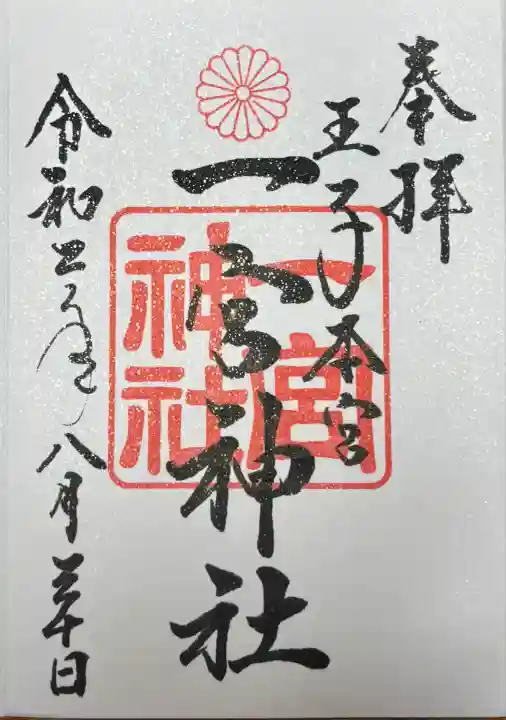 奉拝
王子本宮
一宮神社
一宮
神社
令和 年八月 日